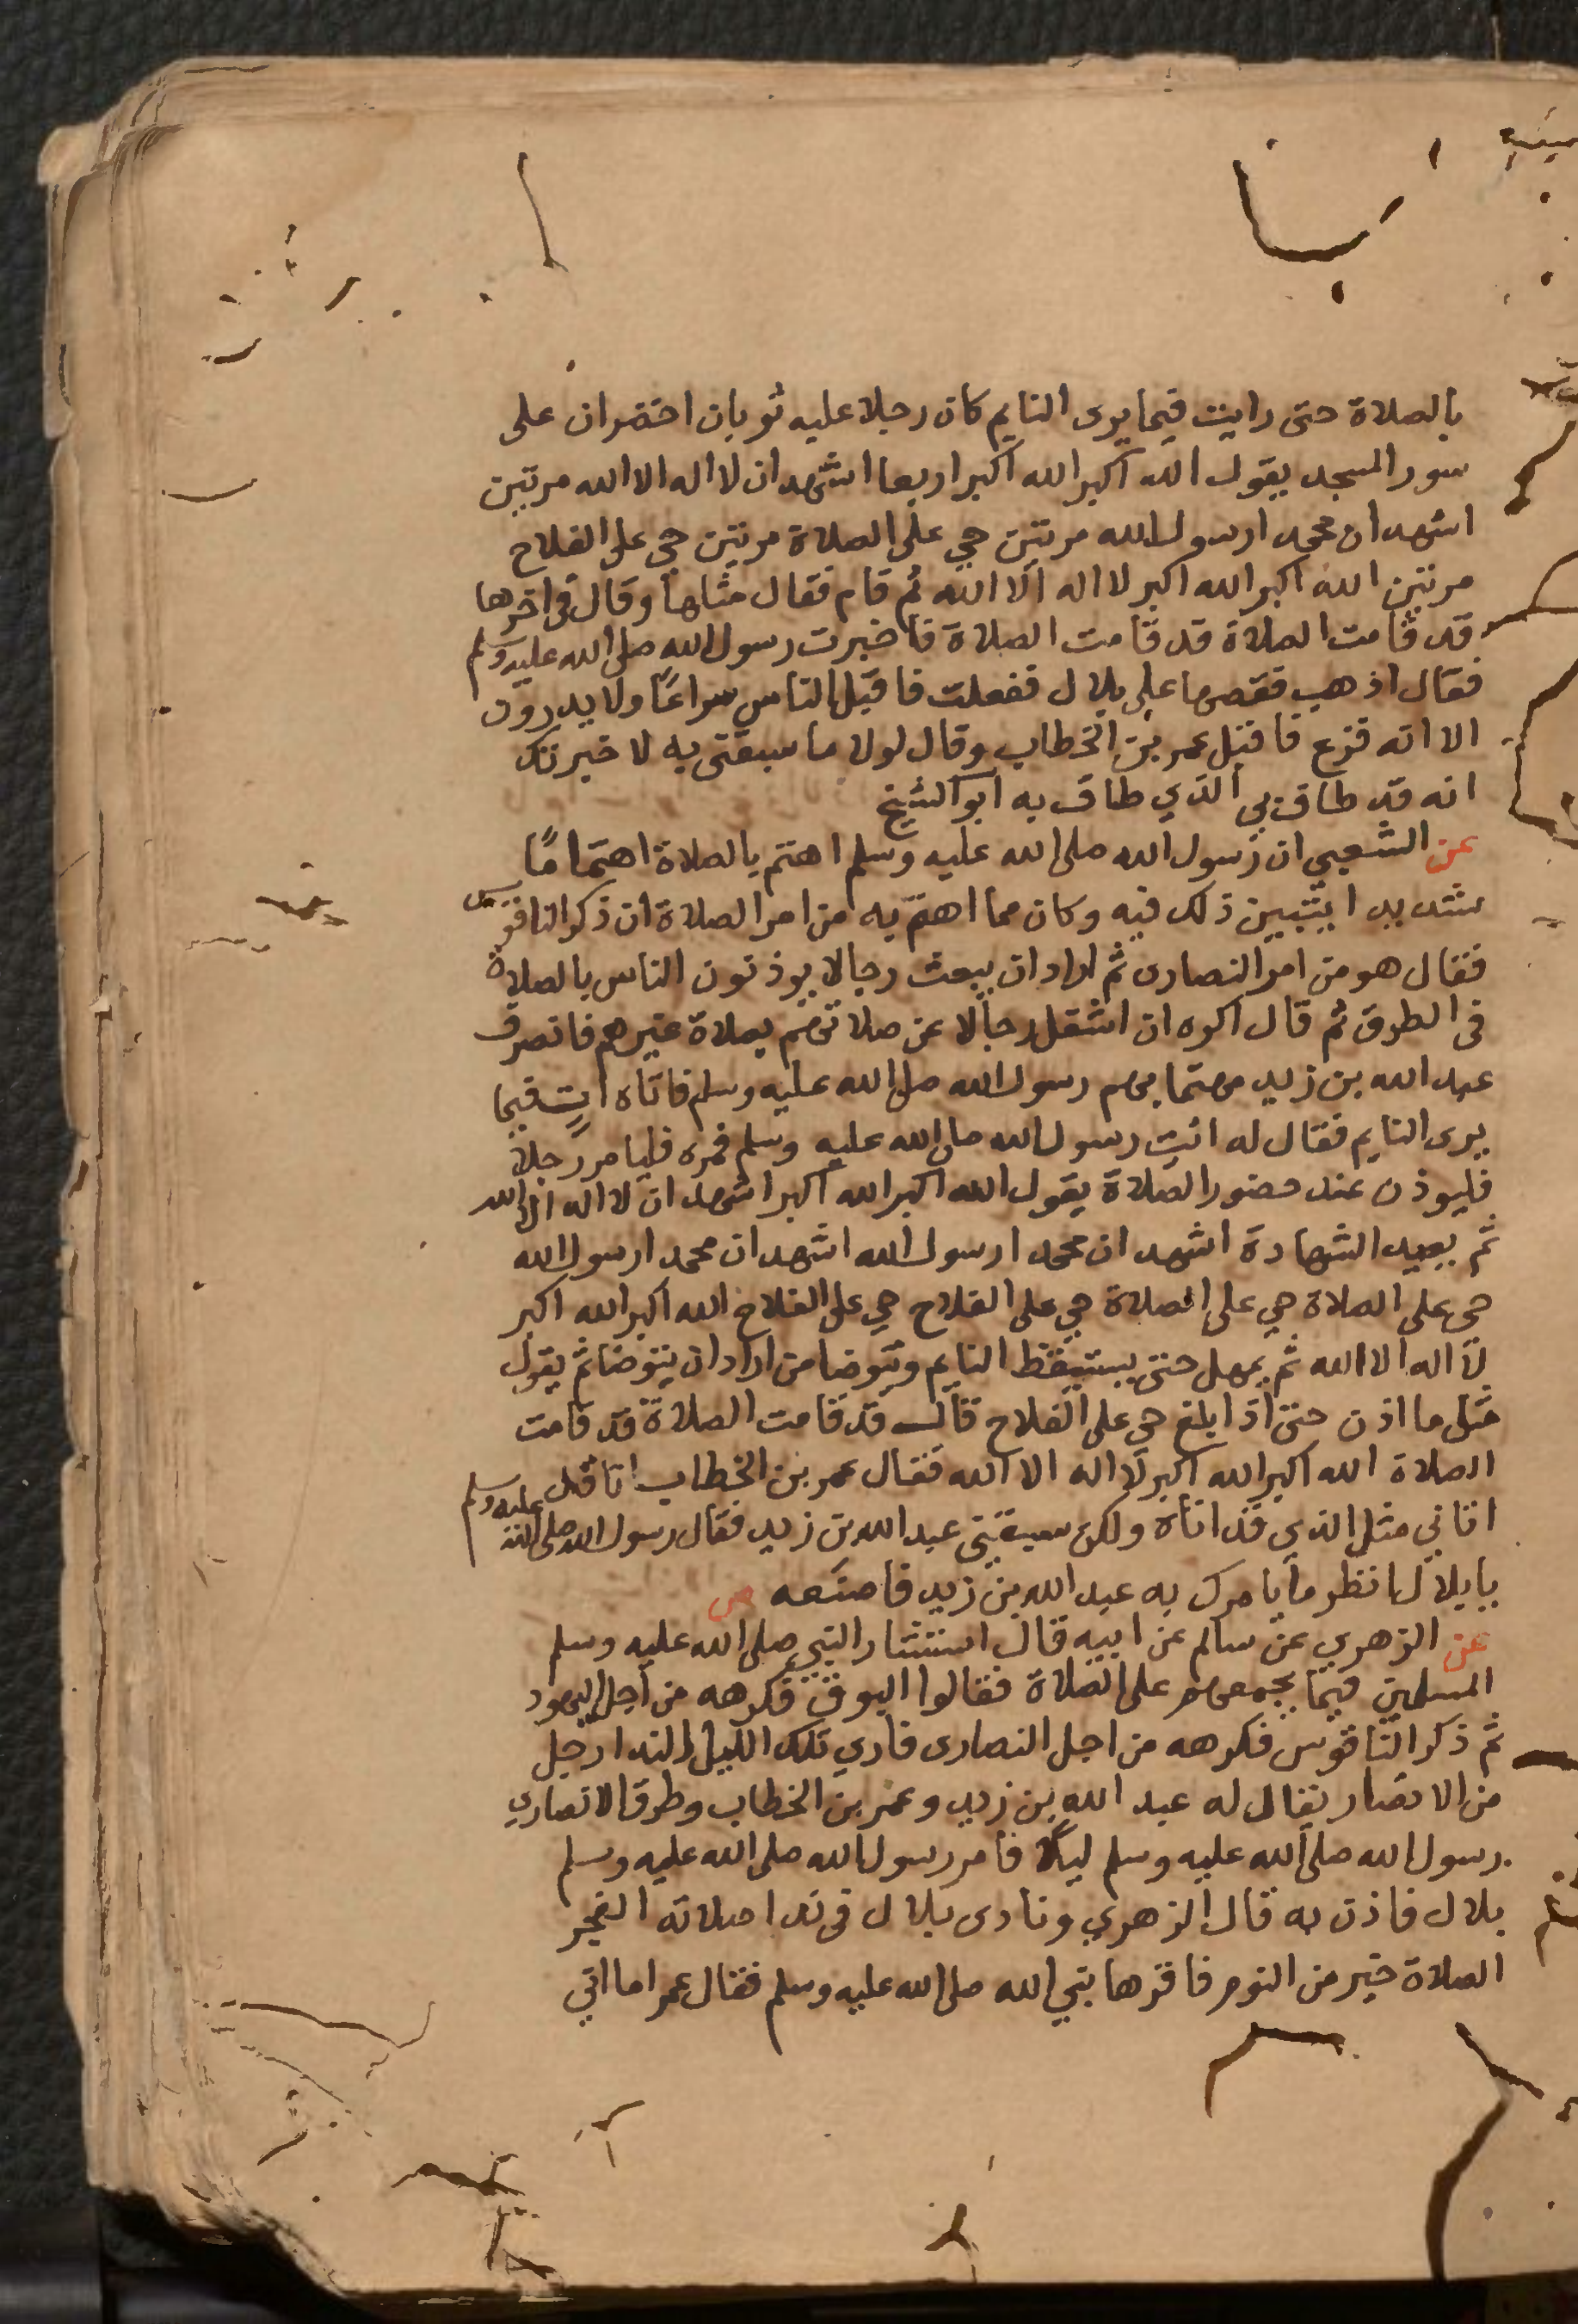 بالصلاة حتى رايت فيما يرى النايم كان رجلا عليه ثوبان اخضران على
سور المسجد يقول الله اكبر الله اكبر اربعا اشهد ان لا اله الا الله مرتين
اشهد ان محمد ارسول الله مرتين حي على الصلاة مرتين حي على الفلاح
مرتين الله اكبر الله اكبر لا اله الا الله ثم قام فقال مثلها وقال في اخرها
قد قامت الصلاة قد قامت الصلاة فاخبرت رسول الله صلى الله عليه وسلم
فقال اذهب فقصها على بلال ففعلت فاقبل الناس سراعًا ولا يدرون
الا انه فزع فاقبل عمر بن الخطاب وقال لولا ما سبقني به لاخبرتك
انه قد طاف بي الذي طاف به ابو الشيخ
عن الشعبي ان رسول الله صلى الله عليه وسلم اهتم بالصلاة اهتمامًا
شديدا يتبين ذلك فيه وكان مما اهتم به من امر الصلاة ان ذكر الناقوس
فقال هو من امر النصارى ثم اراد ان يبعث رجالا يوذنون الناس بالصلاة
في الطرق ثم قال اكره ان اشغل رجالا عن صلاتهم بصلاة غيرهم فانصرف
عبد الله بن زيد مهتما بهم رسول الله صلى الله عليه وسلم فاتاه اتٍ فيما
يرى النايم فقال له ائت رسول الله صلى الله عليه وسلم فمره فليامر رجلا
فليوذن عند حضور الصلاة يقول الله اكبر الله اكبر اشهد ان لا اله الا الله
ثم يعيد الشهادة اشهد ان محمد ارسول الله اشهد ان محمد ارسول الله
حي على الصلاة حي على الصلاة حي على الفلاح حي على الفلاح الله اكبر الله اكبر
لا اله الا الله ثم يمهل حتى يستيقظ النايم ويتوضا من اراد ان يتوضا ثم يقول
مثل ما اذن حتى اذا بلغ حي على الفلاح قال قد قامت الصلاة قد قامت
الصلاة الله اكبر الله اكبر لا اله الا الله فقال عمر بن الخطاب انا قد
اتاني مثل الذي قد اتاه ولكن سبقني عبد الله بن زيد فقال رسول الله صلى الله عليه وسلم
يا بلال انظر ما يامرك به عبد الله بن زيد فاصنعه ص
عن الزهري عن سالم عن ابيه قال استشار النبي صلى الله عليه وسلم
المسلمين فيما يجمعهم على الصلاة فقالوا البوق فكرهه من اجل اليهود
ثم ذكر الناقوس فكرهه من اجل النصارى فاري تلك الليل الندا رجل
من الانصار يقال له عبد الله بن زيد وعمر بن الخطاب وطرق الانصاري
رسول الله صلى الله عليه وسلم ليلًا فامر رسول الله صلى الله عليه وسلم
بلال فاذن به قال الزهري ونادى بلال في ندا صلاته الفجر
الصلاة خير من النوم فاقرها نبي الله صلى الله عليه وسلم فقال عمر اما اني